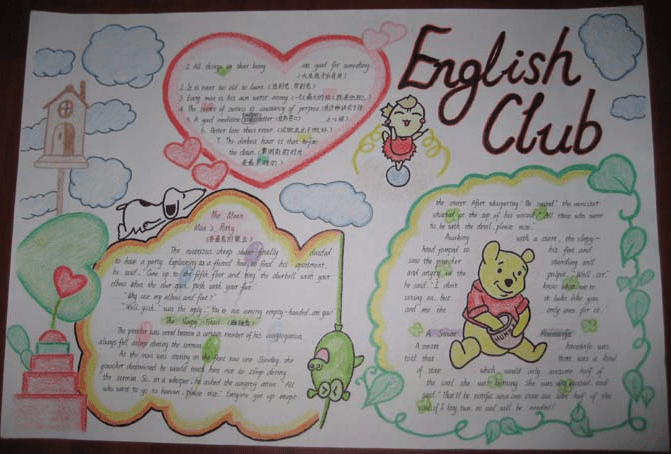 English
Club
1. All things in their being are good for something.
(天生我才必有用)
2. It is never too old to learn. (活到老,学到老)
3. Every man is his own worst enemy. (一个人最大的敌人就是他自己)
4. The secret of success is constancy of purpose.
5. A good medicine tastes bitter. (良药苦口)
6. Better late than never.
7. The darkest hour is that before
the dawn. (黎明前的时分
是最黑暗的)
The Mean
Man's Party
The notorious cheap skate finally decided
to have a party. Explaining to a friend how to find his apartment,
he said, "Come up to the fifth floor and ring the doorbell with your
elbow. When the door open, push with your foot."
"Why use my elbow and foot?"
"Well, gosh," was the reply, "You're not coming empty-handed, are you?"
The Sleepy
The preacher was vexed because a certain member of his congregation
always fell asleep during the sermon.
As the man was snoring in the front row one Sunday, the
preacher determined he would teach him not to sleep during
the sermon. So, in a whisper, he asked the congregation. "All
who want to go to heaven, please rise." Everyone got up except
the snorer. After whispering "Be seated", the minister
shouted at the top of his voice, "All those who want
to be with the devil, please rise."
Awaking with a start, the sleepy-
head jumped to his feet and
saw the preacher standing tall
and angry in the pulpit. "Well, sir,"
he said, "I don't know what we're
voting on, but it looks like you
and me are the only ones for it.
A Smart Housewife
A smart housewife was
told that there was a kind
of stove which would only consume half of
the coal she was burning. She was very excited, and
said, "That'll be terrific. Since one stove can save half of the
coal, if I buy two, no coal will be needed!"
HUNNY